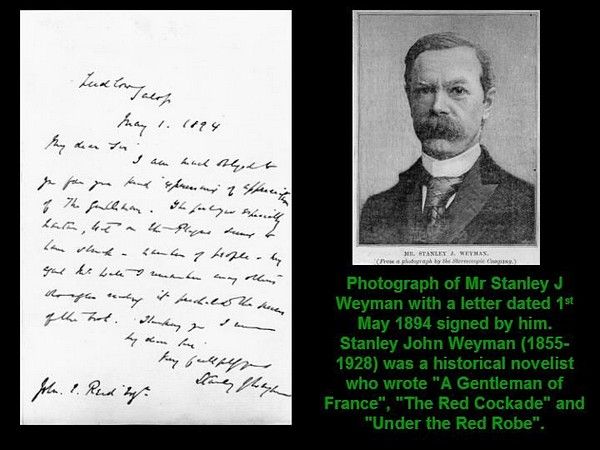 Ludlow
Salop
May 1. 1894
My dear Sir
I am much obliged to
you for your kind expressions of appreciation
of The Gentleman. The
on the Plague seems to
have struck a number of people - my
I remember many others
the
of the book. Thanking you I am
my dear Sir
Very faithfully yours
Stanley J Weyman
John. Esq.
MR. STANLEY J. WEYMAN.
(From a photograph by the Stereoscopic Company.)
Photograph of Mr Stanley J
Weyman with a letter dated 1st
May 1894 signed by him.
Stanley John Weyman (1855-
1928) was a historical novelist
who wrote "A Gentleman of
France", "The Red Cockade" and
"Under the Red Robe".